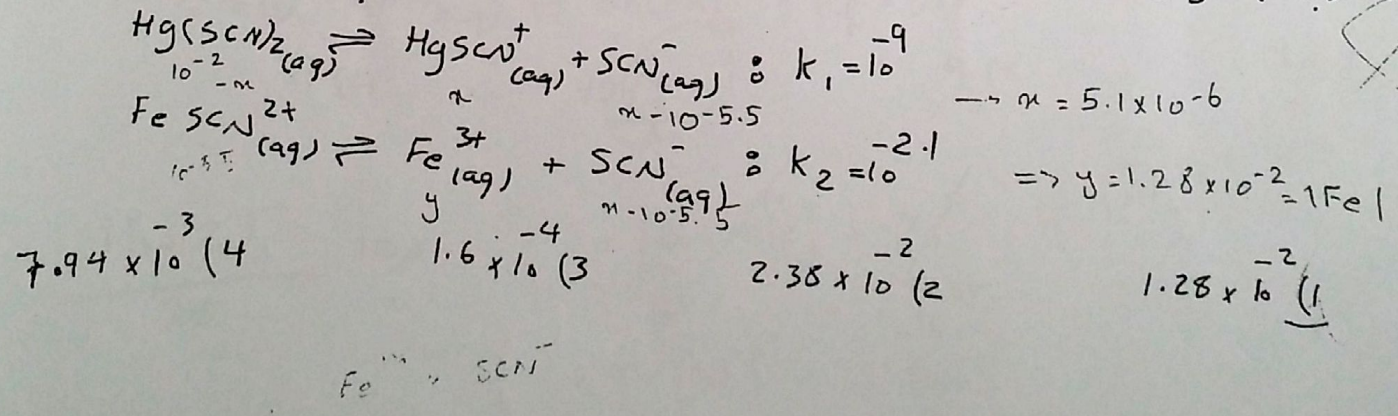 Hg(SCN)₂(aq) ⇌ HgSCN⁺(aq) + SCN⁻(aq) : k₁ = 10⁻⁹
10⁻² - x x x - 10-5.5 → x = 5.1 x 10-6
FeSCN²⁺(aq) ⇌ Fe³⁺(aq) + SCN⁻(aq) : k₂ = 10⁻²·¹
y x - 10-5.5 => y = 1.28 x 10⁻² = 1Fe1
7.94 x 10⁻³ (4 1.6 x 10⁻⁴ (3 2.38 x 10⁻² (2 1.28 x 10⁻² (1
Fe''' , SCN⁻